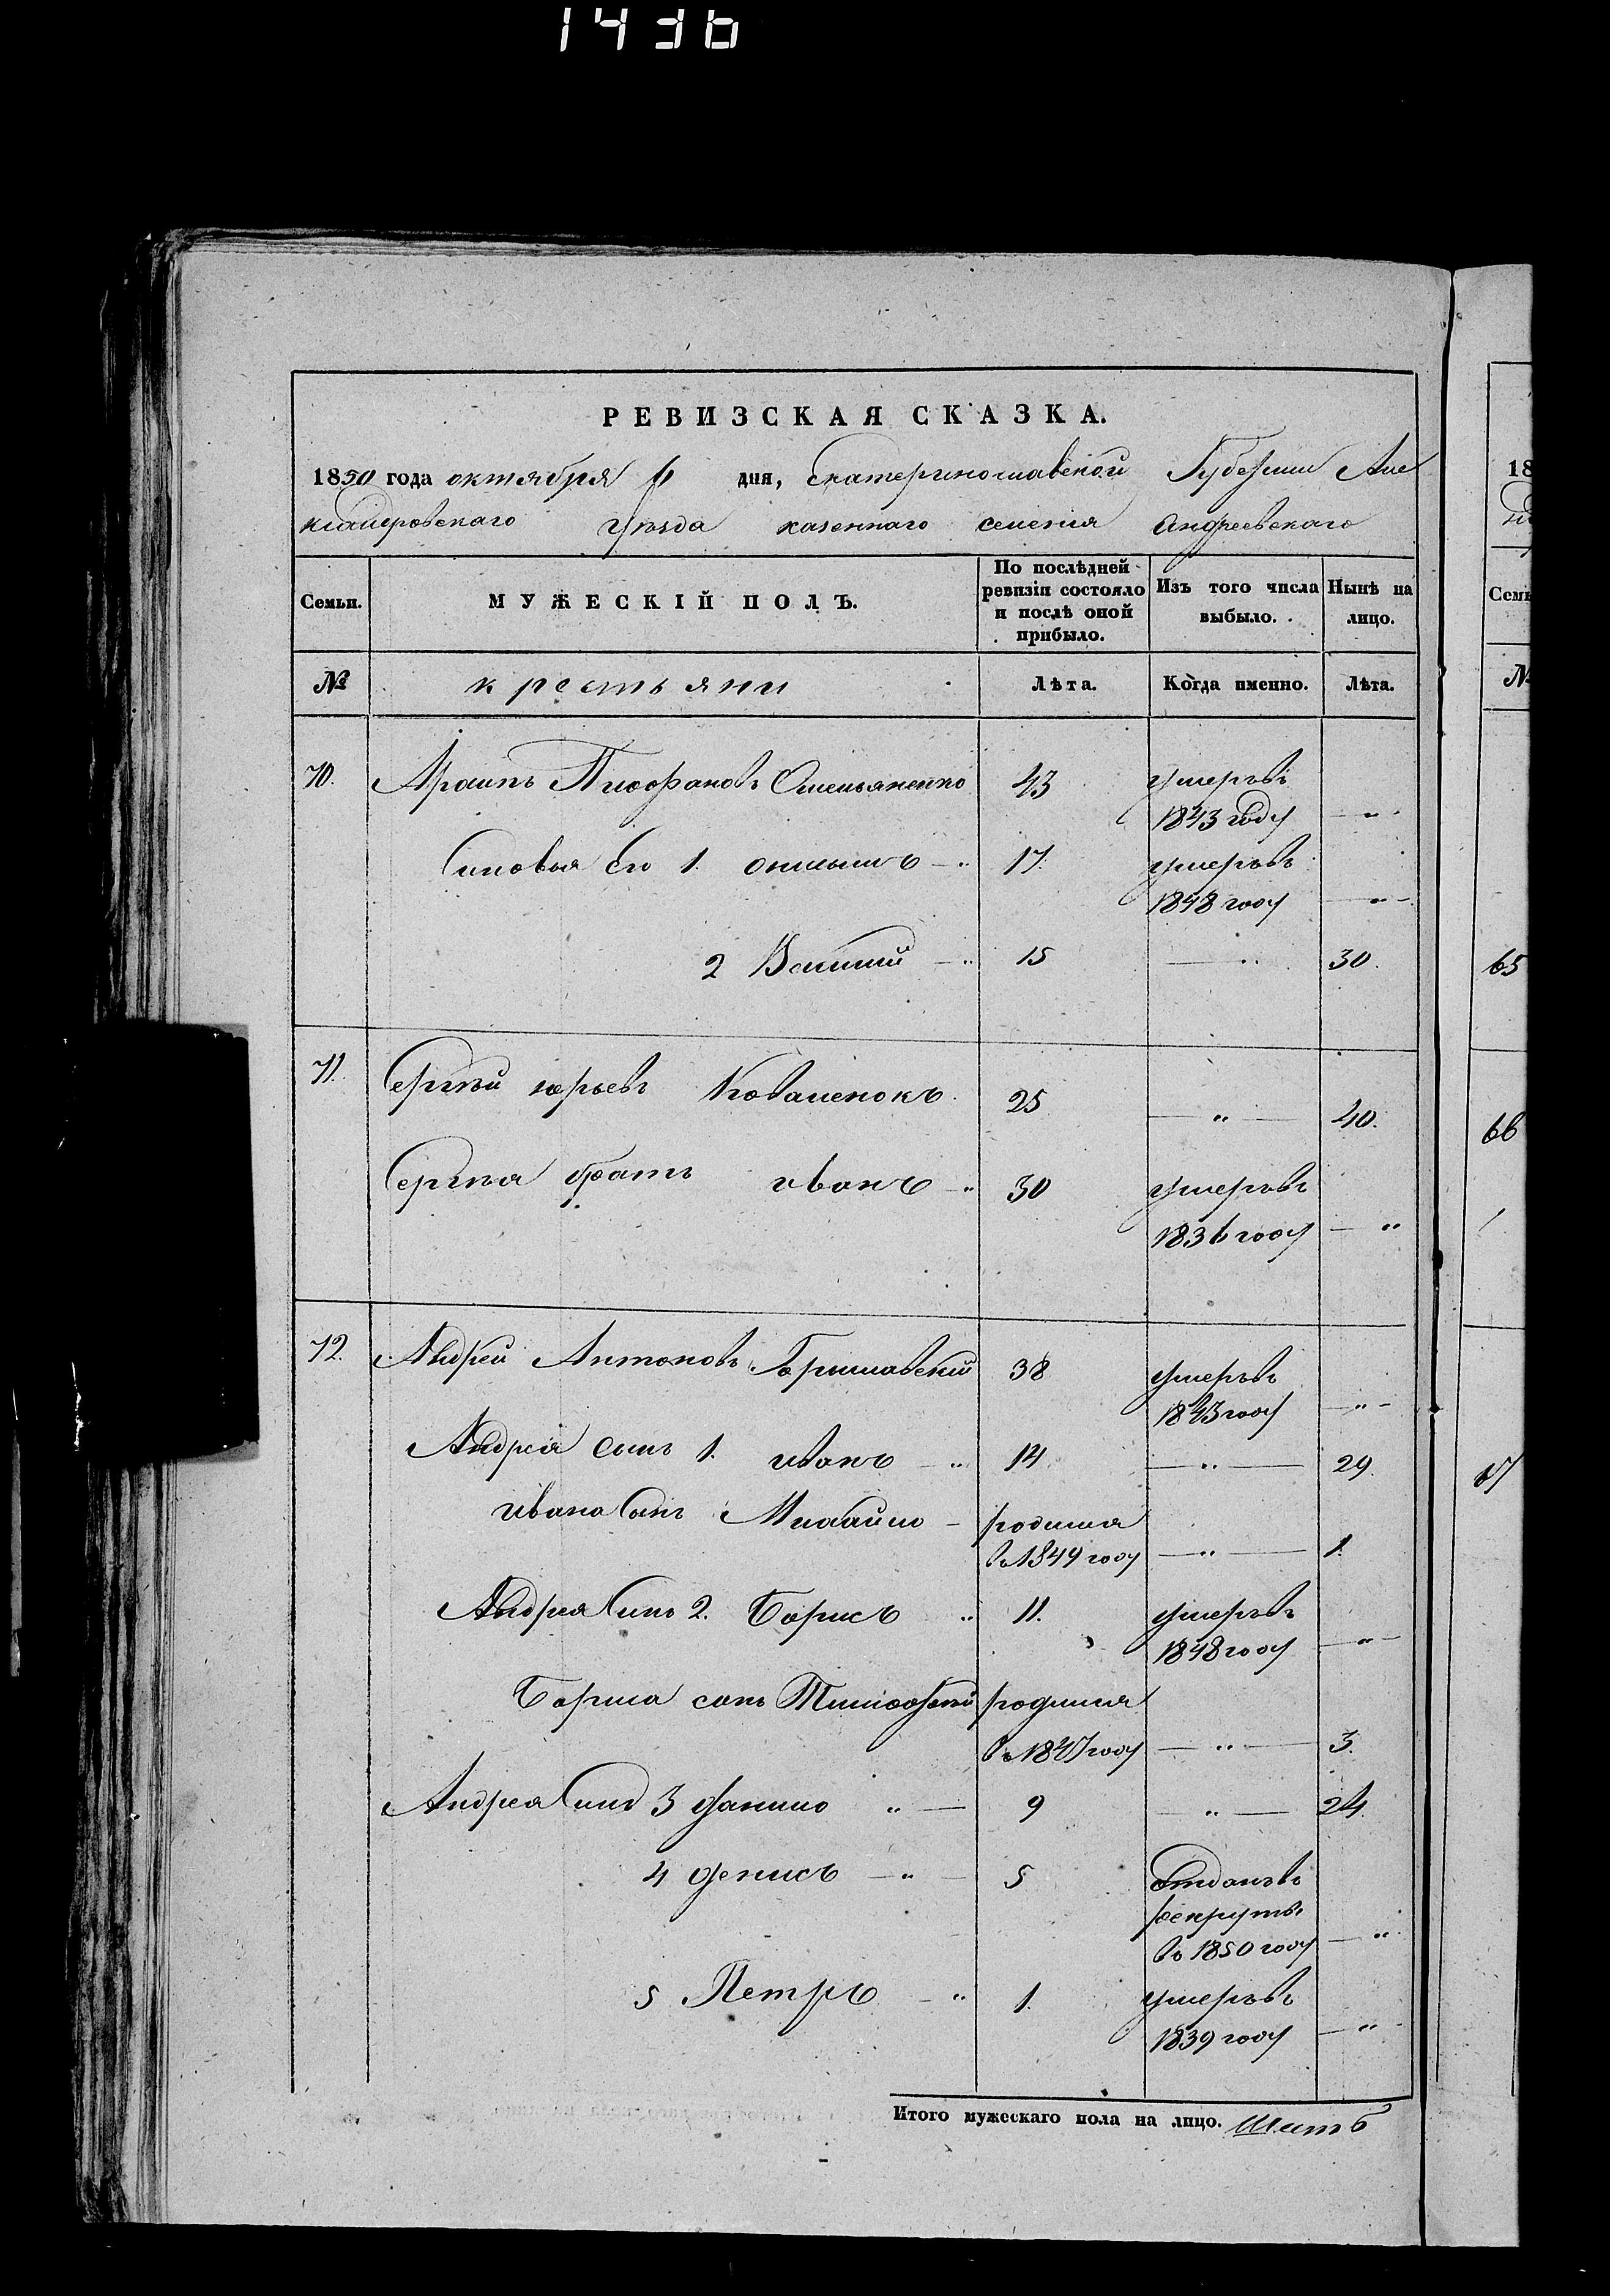 1436
РЕВИЗСКАЯ СКАЗКА.
1850 года октября 6 дня, Екатеринославской Губернии Але
ксандровскаго Уѣзда казеннаго селенія Андреевскаго
Семьи.
МУЖЕСКІЙ ПОЛЪ.
По послѣдней ревизіи состояло и послѣ оной прибыло.
Изъ того числа выбыло.
Нынѣ на лицо.
№ крестьяни Лѣта. Когда именно. Лѣта.
70. Омельяненко 43 умеръ въ
1843 году — „ -
Синовья Его 1. — „ 17. умеръ въ
1848 году — „ -
2 — „ 15 — „ 30.
71. Сергѣй юрьевъ Коваленокъ 25 — „ — 40.
Сергѣя братъ иванъ — „ 30 умеръ въ
1836 году — „
72. Андрей Антоновъ 38 умеръ въ
1843 году — „ -
Андрея сынъ 1. иванъ — „ 14 — „ — 29.
ивана Сынъ Михайло - родился
въ 1849 году — „ — 1.
Андрея Синъ 2. Борисъ „ 11. умеръ въ
1848 году — „ -
Бориса синъ Тимофей родился
въ 1847 году — „ — 3.
Андрея Синъ 3 данило „ — 9 „ — 24.
4 денисъ — „ — 5 Отданъ въ
рекруты
въ 1850 году — „
5 Петръ — „ 1. умеръ въ
1839 году — „ -
Итого мужескаго пола на лицо. Шить
18
Семь
№
65
66
67